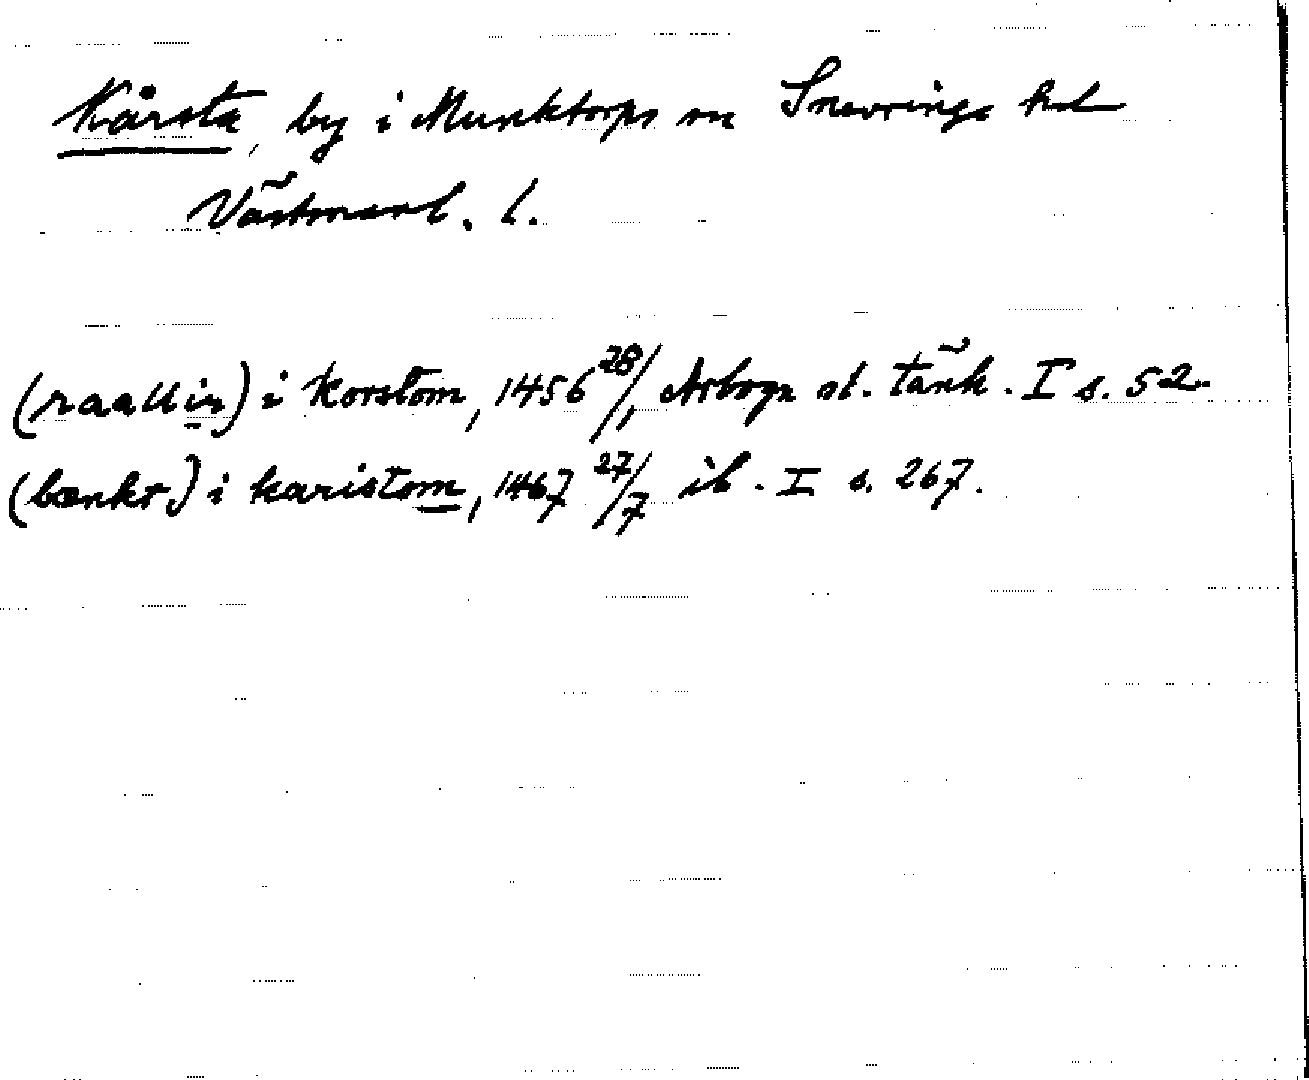 Kårsta, by i Munktorps sn Snevringe hd
Västmanl. l.
(raallin) i korstom, 1456 28/1, Arboga st. tänk. I s. 52
(bænkt) i karistom, 1467 27/7 ib. I s. 267.